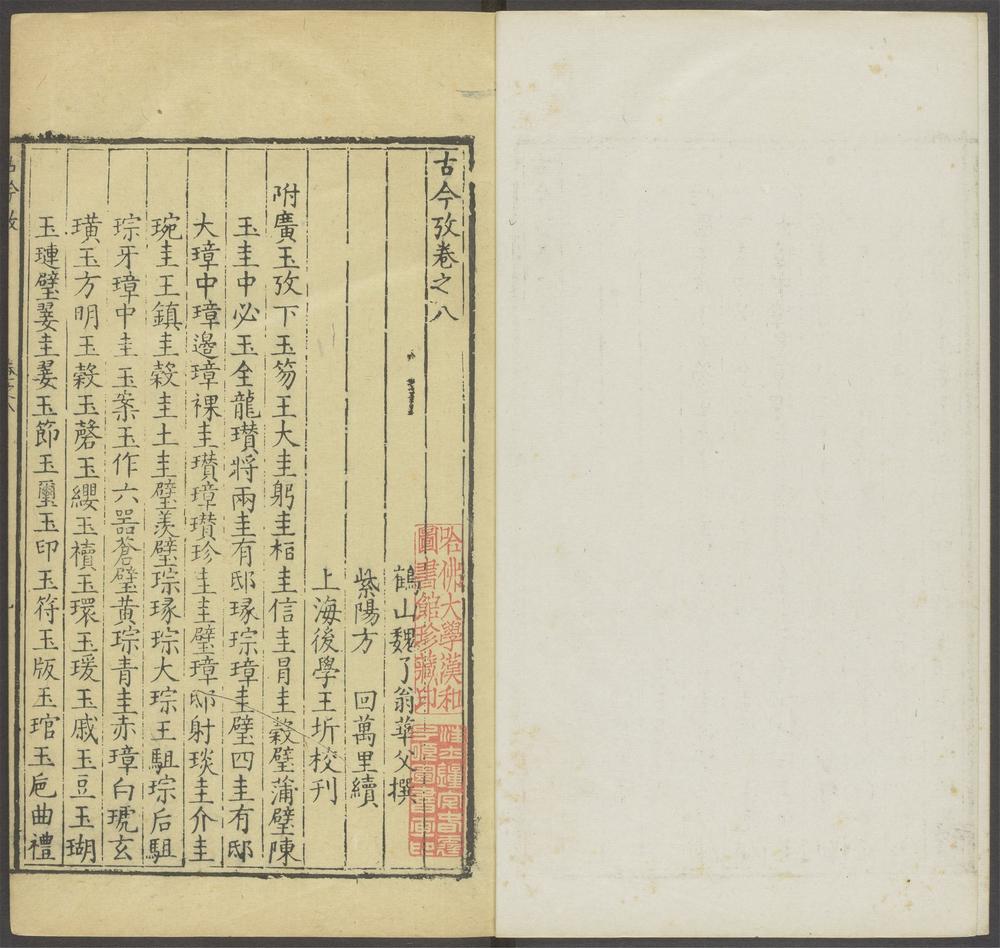 古今攷卷之八
鶴山魏了翁華父撰
紫陽方　回萬里續
上海後學王圻校刊
附廣玉攷下玉笏王大圭躬圭桓圭信圭冐圭穀璧蒲璧陳
玉圭中必玉全龍瓚將兩圭有邸瑑琮璋圭璧四圭有邸
大璋中璋邉璋祼圭瓚璋瓚珍圭圭璧璋邸射琰圭介圭
琬圭王鎮圭穀圭土圭璧羨璧琮瑑琮大琮王駔琮后駔
琮牙璋中圭玉案玉作六器蒼璧黃琮青圭赤璋白琥玄
璜玉方明玉敦玉磬玉纓玉櫝玉環玉瑗玉戚玉豆玉瑚
玉璉璧翣圭翣玉節玉璽玉印玉符玉版玉琯玉巵曲禮
古今攷
哈佛大學漢和
圖書館珍藏印